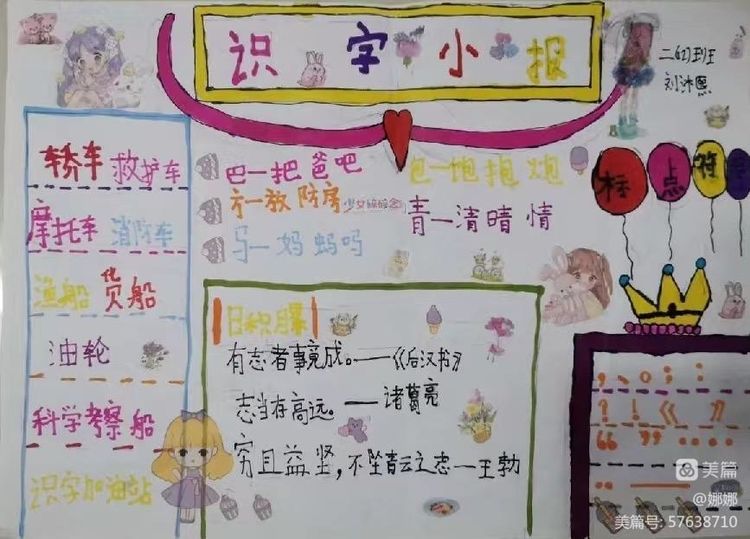 识字小报
二(2)班
刘沐熙
轿车 救护车
摩托车 消防车
渔船 货船
油轮
科学考察船
识字加油站
巴一把爸吧
方一放防房
少女碎碎念
马一妈蚂吗
包一炮抱炮
青一清晴情
标点符
日积月累
有志者事竟成。——《后汉书》
志当存高远。——诸葛亮
穷且益坚，不坠青云之志一王勃
，、。；：
？！《》
“”……
美篇
@娜娜
美篇号: 57638710